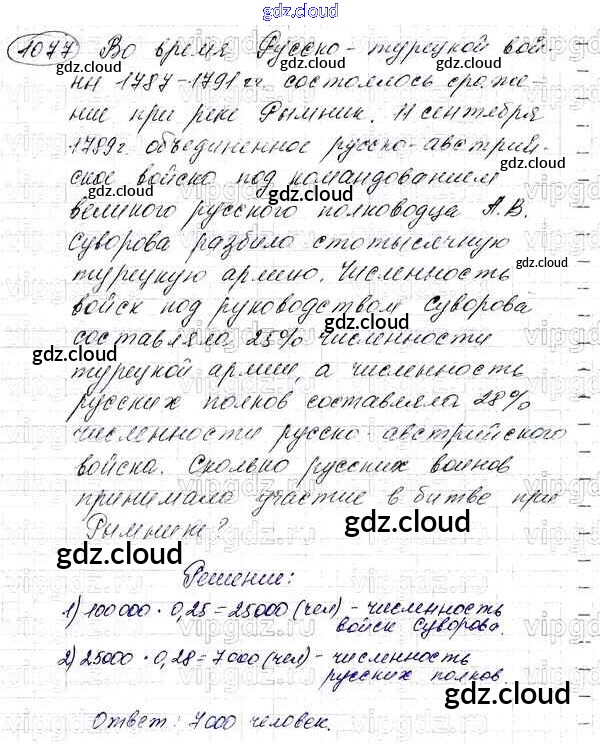 gdz.cloud
1077 Во время Русско-турецкой вой-
ны 1787-1791 гг. состоялось сраже-
ние при реке Рымник. 11 сентября
1789 г. объединенное русско-австрий-
ское войско под командованием
великого русского полководца А.В.
Суворова разбило стотысячную
турецкую армию. Численность
войск под руководством Суворова
составляла 25% численности
турецкой армии, а численность
русских полков составляла 28%
численности русско-австрийского
войска. Сколько русских воинов
принимало участие в битве при
Рымнике?
Решение:
1) 100000 · 0,25 = 25000 (чел) - численность
войск Суворова.
2) 25000 · 0,28 = 7000 (чел) - численность
русских полков.
Ответ: 7000 человек.
gdz.cloud